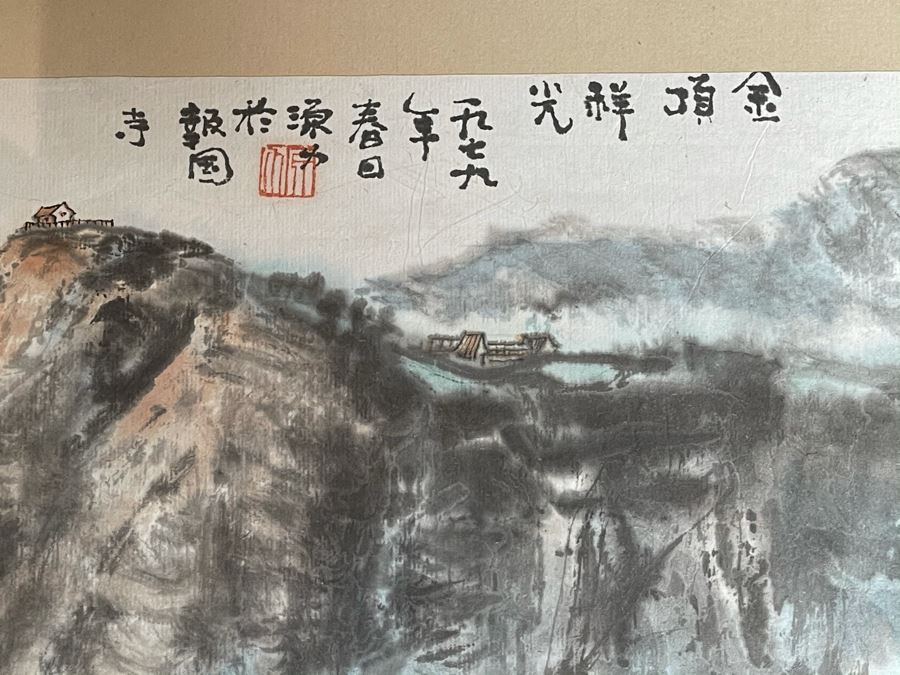 金
頂
祥
光
一九七九
年
春日
於
報国
寺